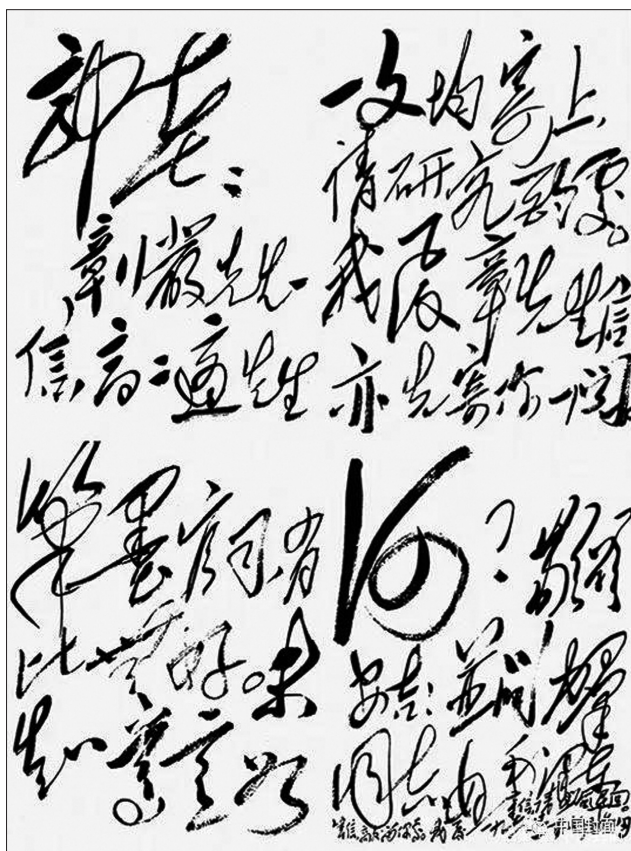 郭老:
章行嚴先生一
信高二適先生
一文均寄上,
请研究酌處。
我复章先生信
亦先寄你一阅
筆墨官司有
比無好。未
知尊意如
何?敬颂
安吉!並问力群
同志好 毛泽东
中国封面